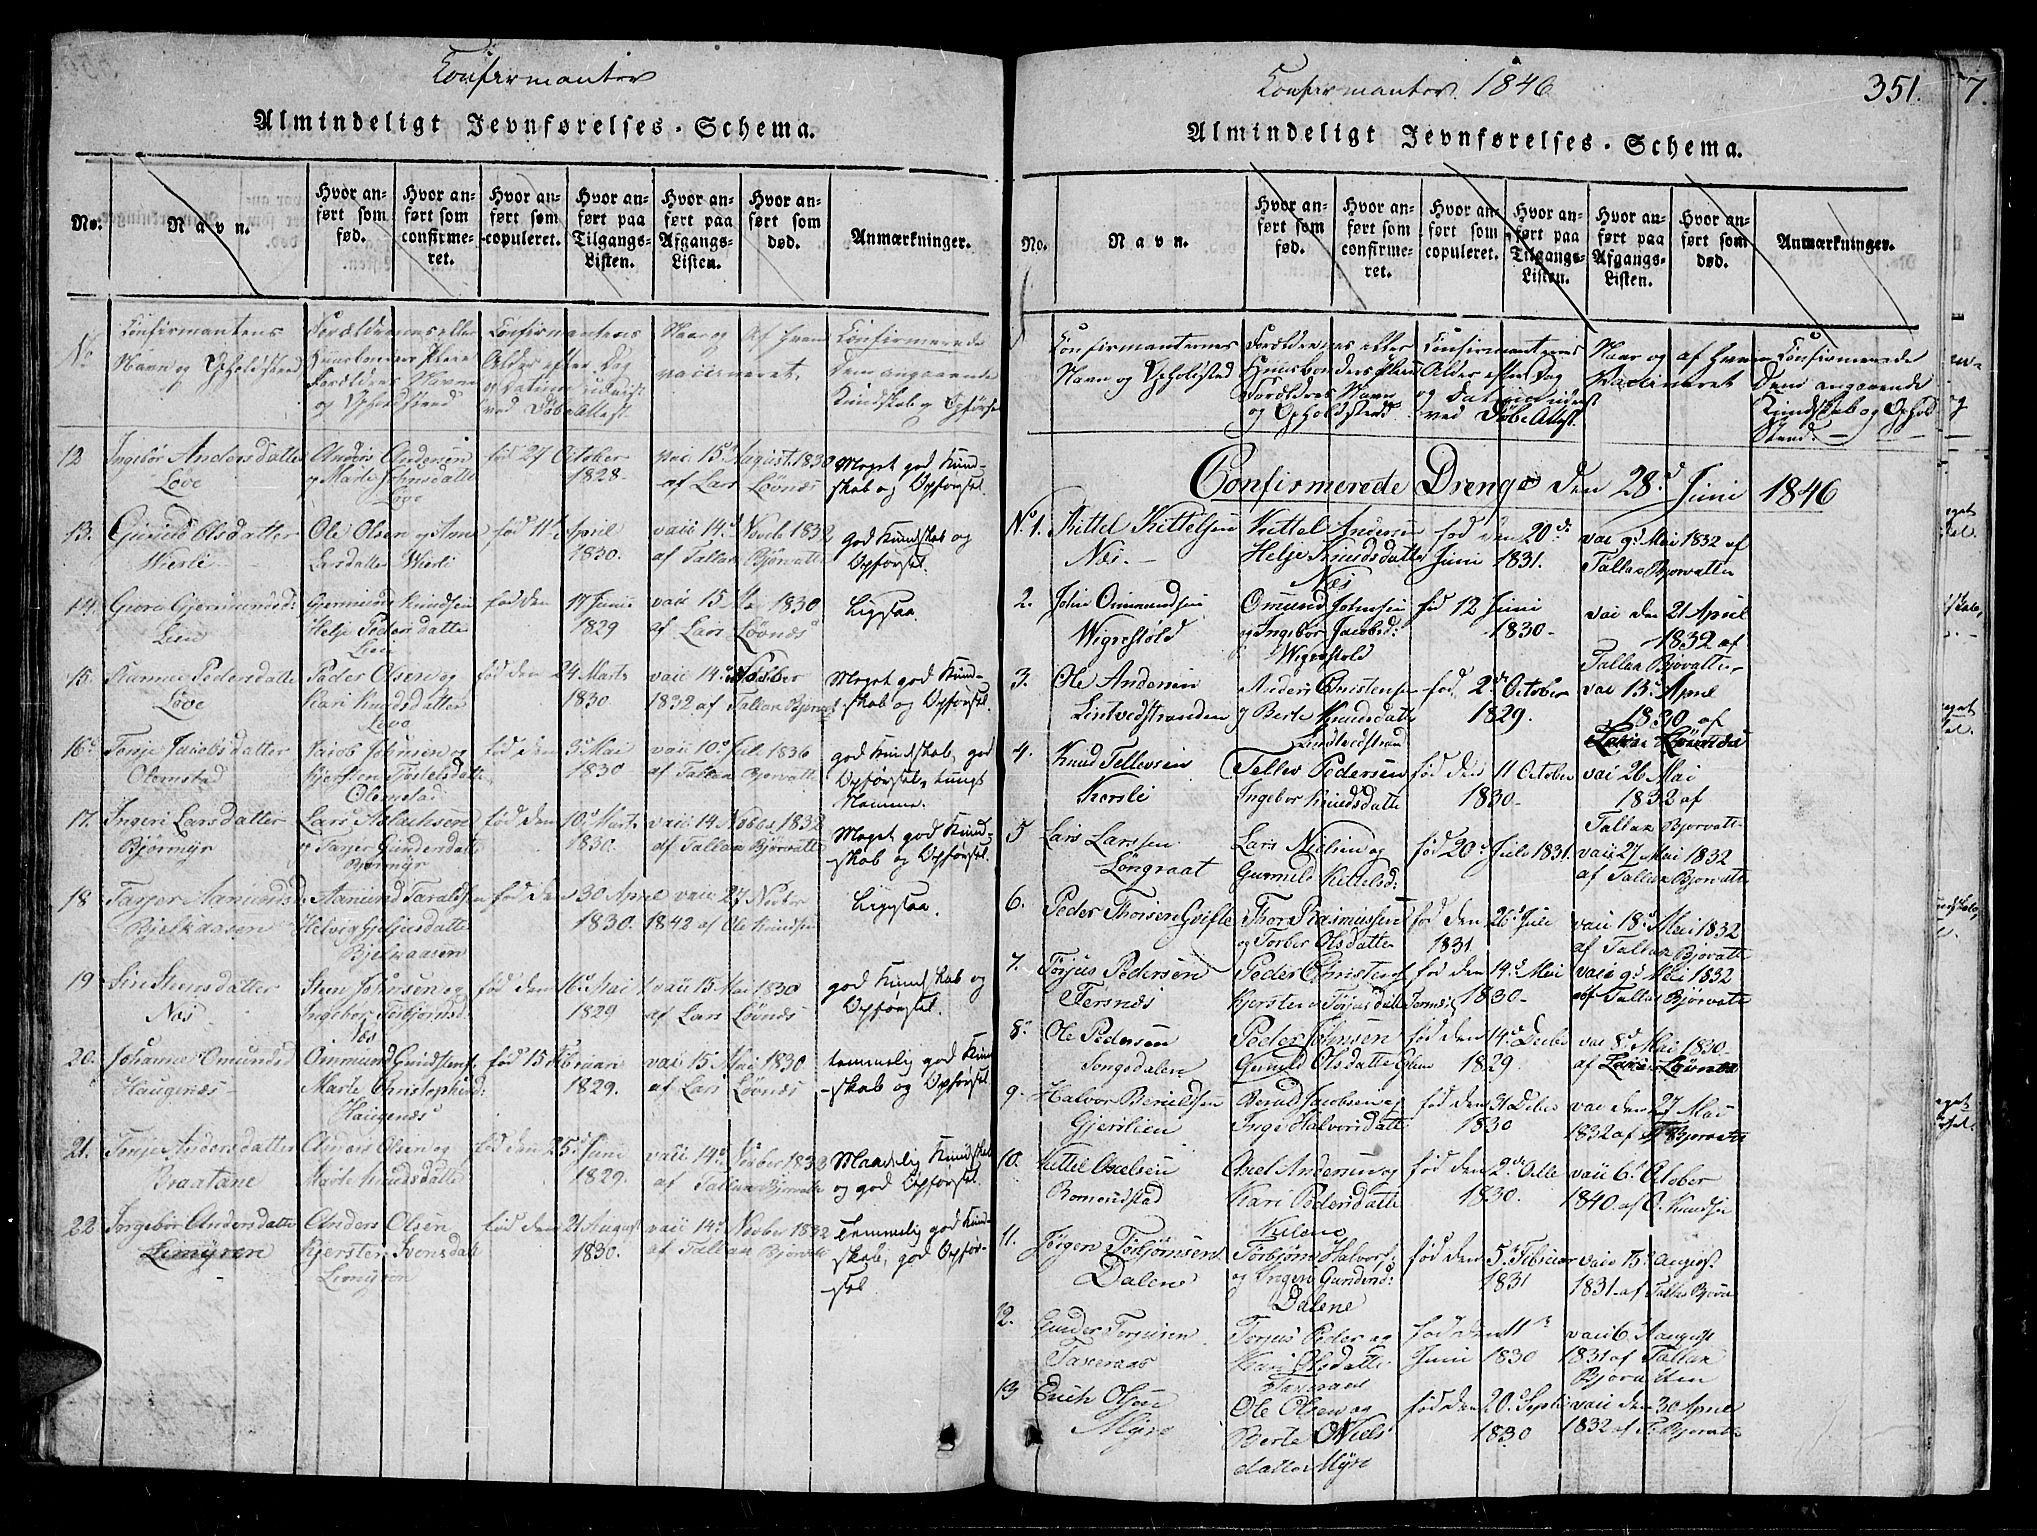 Konfirmanter
Almindeligt Jevnførelses-Schema.
No.
Navn.
Hvor anført som fød.
Hvor anført som confirmeret.
Hvor anført som copuleret.
Hvor anført paa Tilgangs-Listen.
Hvor anført paa Afgangs-Listen.
Hvor anført som død.
Anmærkninger.
No
Konfirmantens
Navn og Opholdsted
Forældrenes eller
Huusbonders
Forældres Navn
og Opholdsted
Konfirmantens
Alder efter Dag
og Datum udviist
ved Døbe Attest
Naar og af hvem
vaccineret.
Confirmerede
Dem angaaende
Kundskab og Opførsel
12 Ingebor Andersdatter
Løve
Anders Andersen
og Marte Johnsdatter
Løve
fød 27 October
1828
vac 15 August 1830
af Lars Løvnæs
Meget god Kund-
skab og Opførsel.
13. Gunild Olsdatter
Wierli
Ole Olsen og Anne
Larsdatter Wierli
fød 11 April
1830.
vacc 14 Novbr 1832
af Tallax Bjørvatte
god Kundskab og
Opførsel.
14. Guro Gjermunds:
Lien
Gjermund Knudsen
Helje Pedersdatter
Lien
fød den 17 Junii
1829
vacc 15 Ma 1830
af Lars Løvnæs
Ligesaa.
15. Karen Pedersdatter
Løve
Peder Olsen og
Kari Knudsdatter
Løve
fød den 24 Marts
1830
vacc 14 Novbr
1832 af Tallax Bjørvat
Meget god Kund-
skab og Opførsel.
16. Tonje Jacobsdatter
Olimstad
Jacob Johnsen og
Kjersten Tostelsdatte
Olimstad
fød den 3 Mai
1830
vacc 10 Juli 1836
af Tallax Bjørvatte
god Kundskab, god
Opførsel, tungt
Nemme.
17. Ingeri Larsdatter
Bjørmyr
Lars Aslachsen
og Tarjer Gundersdatte
Bjørmyr
fød den 10 Marts
1830.
vacc 14 Novbr 1832
af Tallax Bjørvatte
Meget god Kund-
skab og Opførsel.
18 Tarjer Aanunds
Bjelkaasen
Aanund Taraldsen
Helvig Gjeljusdatter
Bjelkaasen
fød den 30 April
1830.
vacc 27 Novbr
1842 af Ole Knudsen
Ligesaa.
19 Siri Stensdatter
Næs
Sten Johnsen og
Ingebor Torbjørnsd:
Næs
fød den 16 Mai
1829
vacc 15 Mai 1830
af Lars Løvnæs
god Kundskab og
Opførsel.
20. Johanne Omunds
Haugenæs
Ommund Gundstens:
Marte Christophersd:
Haugenæs
fød 15 Februari
1829.
vacc 15 Mai 1830
af Lars Løvnæs
temmelig god Kund
-skab og Opførsel.
21. Tonje Andersdatter
Braatane
Anders Olsen og
Marte Knudsdatter
fød den 25 Juni
1829.
vacc 14 Novber 1832
af Tallax Bjørvatte
Maadelig Kundskab
og god Opførsel.
22 Ingebor Andersdatter
Limyren
Anders Olsen
Kjersten Svensdatt
Limyren
fød den 21 August
1830.
vacc 14 Novber 1832
af Tallax Bjørvatte
Temmelig god Kund-
skab, god Opfør-
sel
Konfirmanter 1846
351.
7.
Almindeligt Jevnførelses-Schema.
No.
Navn.
Hvor anført som fød.
Hvor anført som confirmeret.
Hvor anført som copuleret.
Hvor anført paa Tilgangs-Listen.
Hvor anført paa Afgangs-Listen.
Hvor anført som død.
Anmærkninger.
Konfirmanternes
Navn og Opholdsted
Forældrenes eller
Huusbonders
Forældres Navn
og Opholdsted
Konfirmanternes
Alder efter Dag
og Datum udviist
ved Døbe Attest.
Naar og af hvem
Vaccineret
Confirmerede
Dem angaaende
Kundskab og Ophold
Stand.
Confirmerede Drenge den 28d Juni 1846
No 1. Kittel Kittelsen
Næs.
Kittel Andersen
Helje Knudsdatter
Næs
fød den 20de
Juni 1831.
vac 9d Mai 1832 af
Tallax Bjorvatten
2. John Omundsen
Wigerstøld
Omund Johnsen
og Ingebor Jacobsd:
Wigerstøld
fød 12 Juni
1830-
vac den 21 April
1832 af
Tallax Bjorvatten
3. Ole Andersen
Lintvedstranden
Anders Christensen
og Berte Knudsdatte
Lindtvedstrand
fød 2de October
1829.
vac 13d April
1830 af
Lars Løvnæs
4. Knud Tellevsen
Kersli
Tellev Pedersen
Ingebor Knudsdatte
fød den 11 October
1830-
vac 26 Mai
1832 af
Tallax Bjorvatte
5 Lars Larssen
Løngraat
Lars Nielsen og
Gunnild Kittelsd:
fød 20d Juli 1831.
vacc 27 Mai 1832
af Tallax Bjorvatte
6. Peder Thorsen Geifle
Thor Rasmussen
og Torber Olsdatter
fød den 26d Juli
1831.
vacc 18d Mai 1832
af Tallax Bjorvatte
7. Torjus Pedersen
Tersnæs
Peder Christens:
Kjersten Torjusdatte Tersnæs
fød den 14d Mai
1830-
vacc 9d Mai 1832
af Tallax Bjørvatte
8. Ole Pedersen
Songedalen
Peder Johnsen
Gunuld Olsdatte
fød den 14d Decbr
1829.
vac 8d Mai 1830-
af Lars Løvnæs
9. Halvor Beruldsen
Gjerslien
Beruld Jacobsen og
Inge Halvorsdatte
fød den 31 Decbr
1830
vac den 27 Mai
1832 af T Bjorvatte
10. Kittel Oxelsen
Romundstad
Oxel Andersen og
Kari Pedersdatte
Kilene
fød den 2de
1830.
vacc 6te October
1840. af O. Knudsen
11. Jørgen Torbjørnsen
Dalene
Torbjørn Halvors:
og Ingeri Gundersd:
Dalene
fød den 5 Februar
1831
vacc 15d August
1831. af Tallax Bjorva
12. Gunder Torjusen
Taxeraas
Torjus Peder og
Kari Olsdatte
Taxeraas
fød den 11te
Juni 1830
vacc 6 Aaugust
1831 af Tallax
Bjorvatten
13 Erich Olsen
Myre
Ole Olsen og
Berte Niels
datter Myre
fød den 20d Septr
1830
vacc den 30 April
1832 af T. Bjorvatte